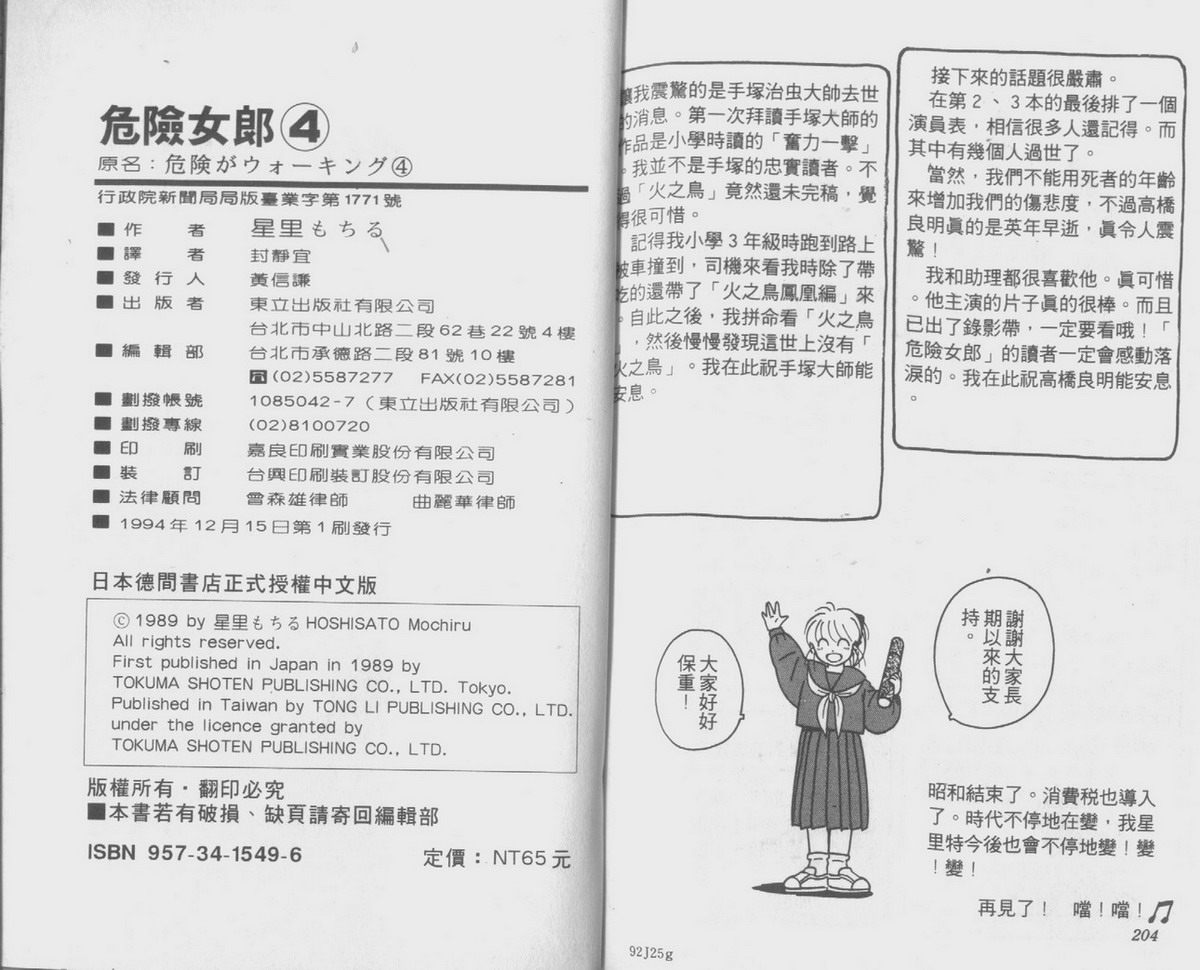 危險女郎④
原名：危険がウォーキング④
行政院新聞局局版臺業字第1771號
■作　　者　星里もちる
■譯　　者　封靜宜
■發 行 人　黃信謙
■出 版 者　東立出版社有限公司
台北市中山北路二段62巷22號4樓
■編 輯 部　台北市承德路二段81號10樓
☎(02)5587277　FAX(02)5587281
■劃撥帳號　1085042-7（東立出版社有限公司）
■劃撥專線　(02)8100720
■印　　刷　嘉良印刷實業股份有限公司
■裝　　訂　台興印刷裝訂股份有限公司
■法律顧問　曾森雄律師　曲麗華律師
■1994年12月15日第1刷發行
日本德間書店正式授權中文版
ⓒ 1989 by 星里もちる HOSHISATO Mochiru
All rights reserved.
First published in Japan in 1989 by
TOKUMA SHOTEN PUBLISHING CO., LTD. Tokyo.
Published in Taiwan by TONG LI PUBLISHING CO., LTD.
under the licence granted by
TOKUMA SHOTEN PUBLISHING CO., LTD.
版權所有・翻印必究
■本書若有破損、缺頁請寄回編輯部
ISBN 957-34-1549-6　定價：NT65元
接下來的話題很嚴肅。
在第2、3本的最後排了一個
演員表，相信很多人還記得。而
其中有幾個人過世了。
當然，我們不能用死者的年齡
來增加我們的傷悲度，不過高橋
良明眞的是英年早逝，眞令人震
驚！
我和助理都很喜歡他。眞可惜
。他主演的片子眞的很棒。而且
已出了錄影帶，一定要看哦！「
危險女郎」的讀者一定會感動落
淚的。我在此祝高橋良明能安息
。
讓我震驚的是手塚治虫大師去世
的消息。第一次拜讀手塚大師的
作品是小學時讀的「奮力一擊」
。我並不是手塚的忠實讀者。不
過「火之鳥」竟然還未完稿，覺
得很可惜。
記得我小學3年級時跑到路上
被車撞到，司機來看我時除了帶
吃的還帶了「火之鳥鳳凰編」來
。自此之後，我拼命看「火之鳥
」，然後慢慢發現這世上沒有「
火之鳥」。我在此祝手塚大師能
安息。
謝謝大家長
期以來的支
持。
大家好好
保重！
昭和結束了。消費税也導入
了。時代不停地在變，我星
里特今後也會不停地變！變
！變！
再見了！　噹！噹！♫
204
92J25g